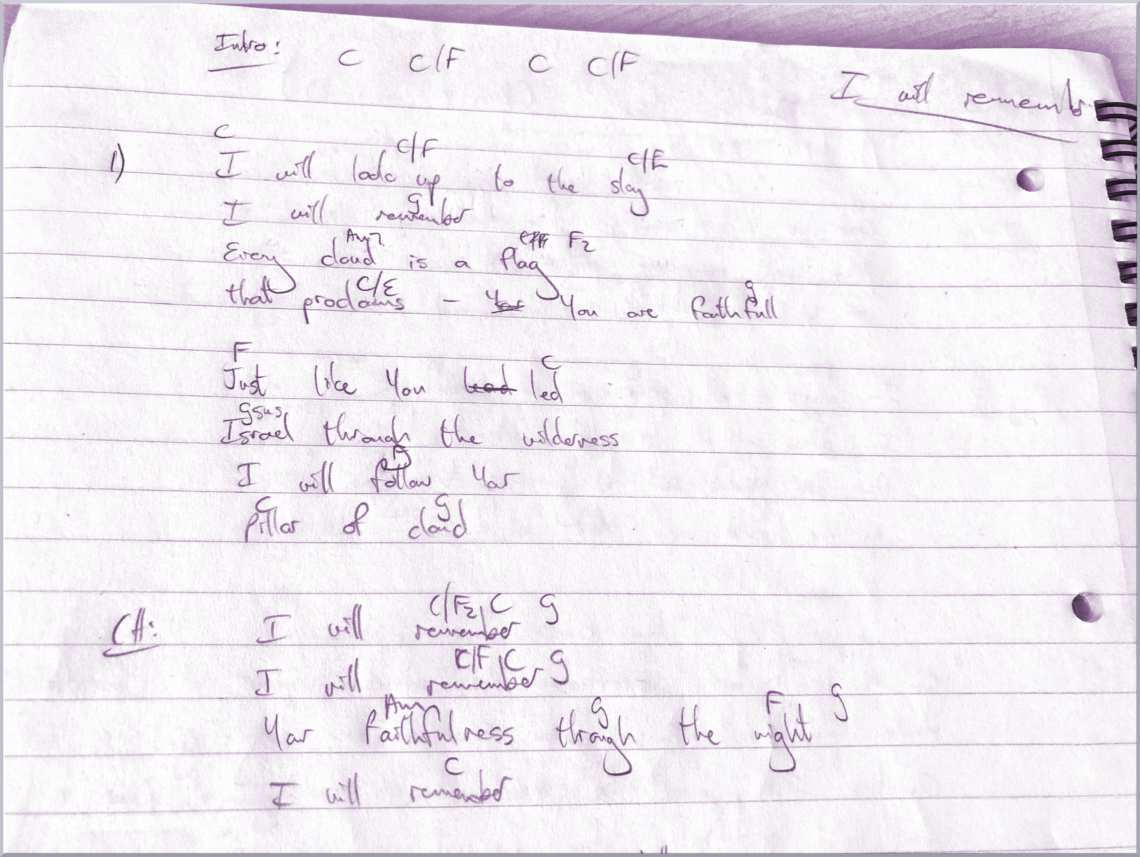 Intro: C C/F C C/F
I will remember
C C/F C/E
1) I will look up to the sky
G
I will remember
Am7 F2
Every cloud is a flag
C/E G
that proclaims - You are faithfull
F C
Just like You led
Gsus
Israel through the wilderness
I will follow Your
C G
pillar of cloud
C/F2 C G
CH: I will remember
C/F C G
I will remember
Am G F G
Your faithfulness through the night
C
I will remember